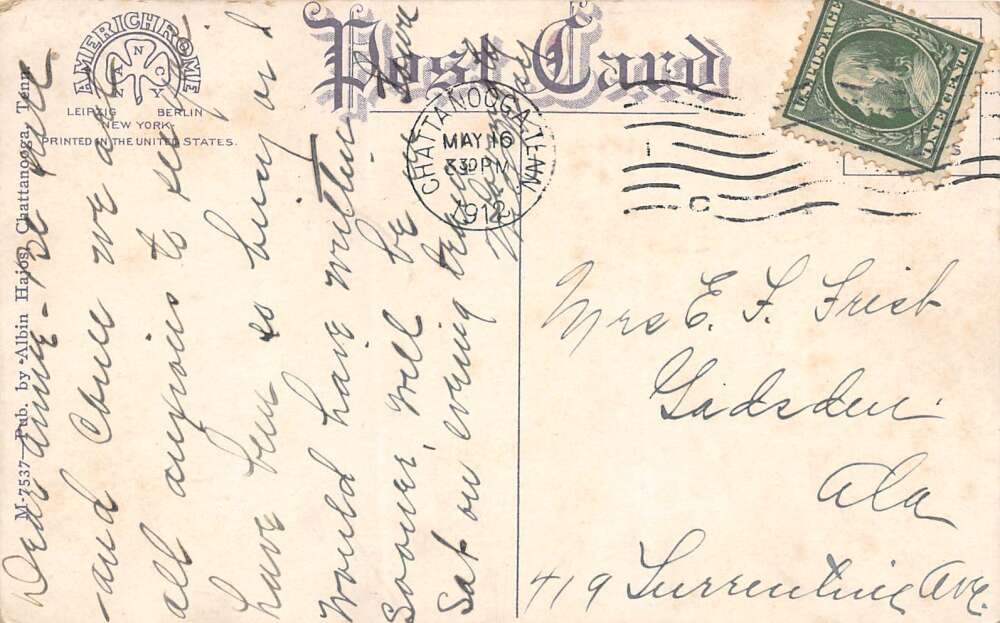 AMERICHROME
A N C Y
LEIPZIG BERLIN
NEW YORK
PRINTED IN THE UNITED STATES.
Post Card
M-7537—Pub. by Albin Hajos, Chattanooga, Tenn.
CHATTANOOGA, TENN.
MAY 16
830 PM
1912
U.S. POSTAGE
ONE CENT
Dear Annie - Be sure
and come we are
all anxious to see you
have been so busy or I
would have written
sooner, will be
Sat on evening
Mrs E. F. Frist
Gadsden
Ala
419 Turrentine Ave.